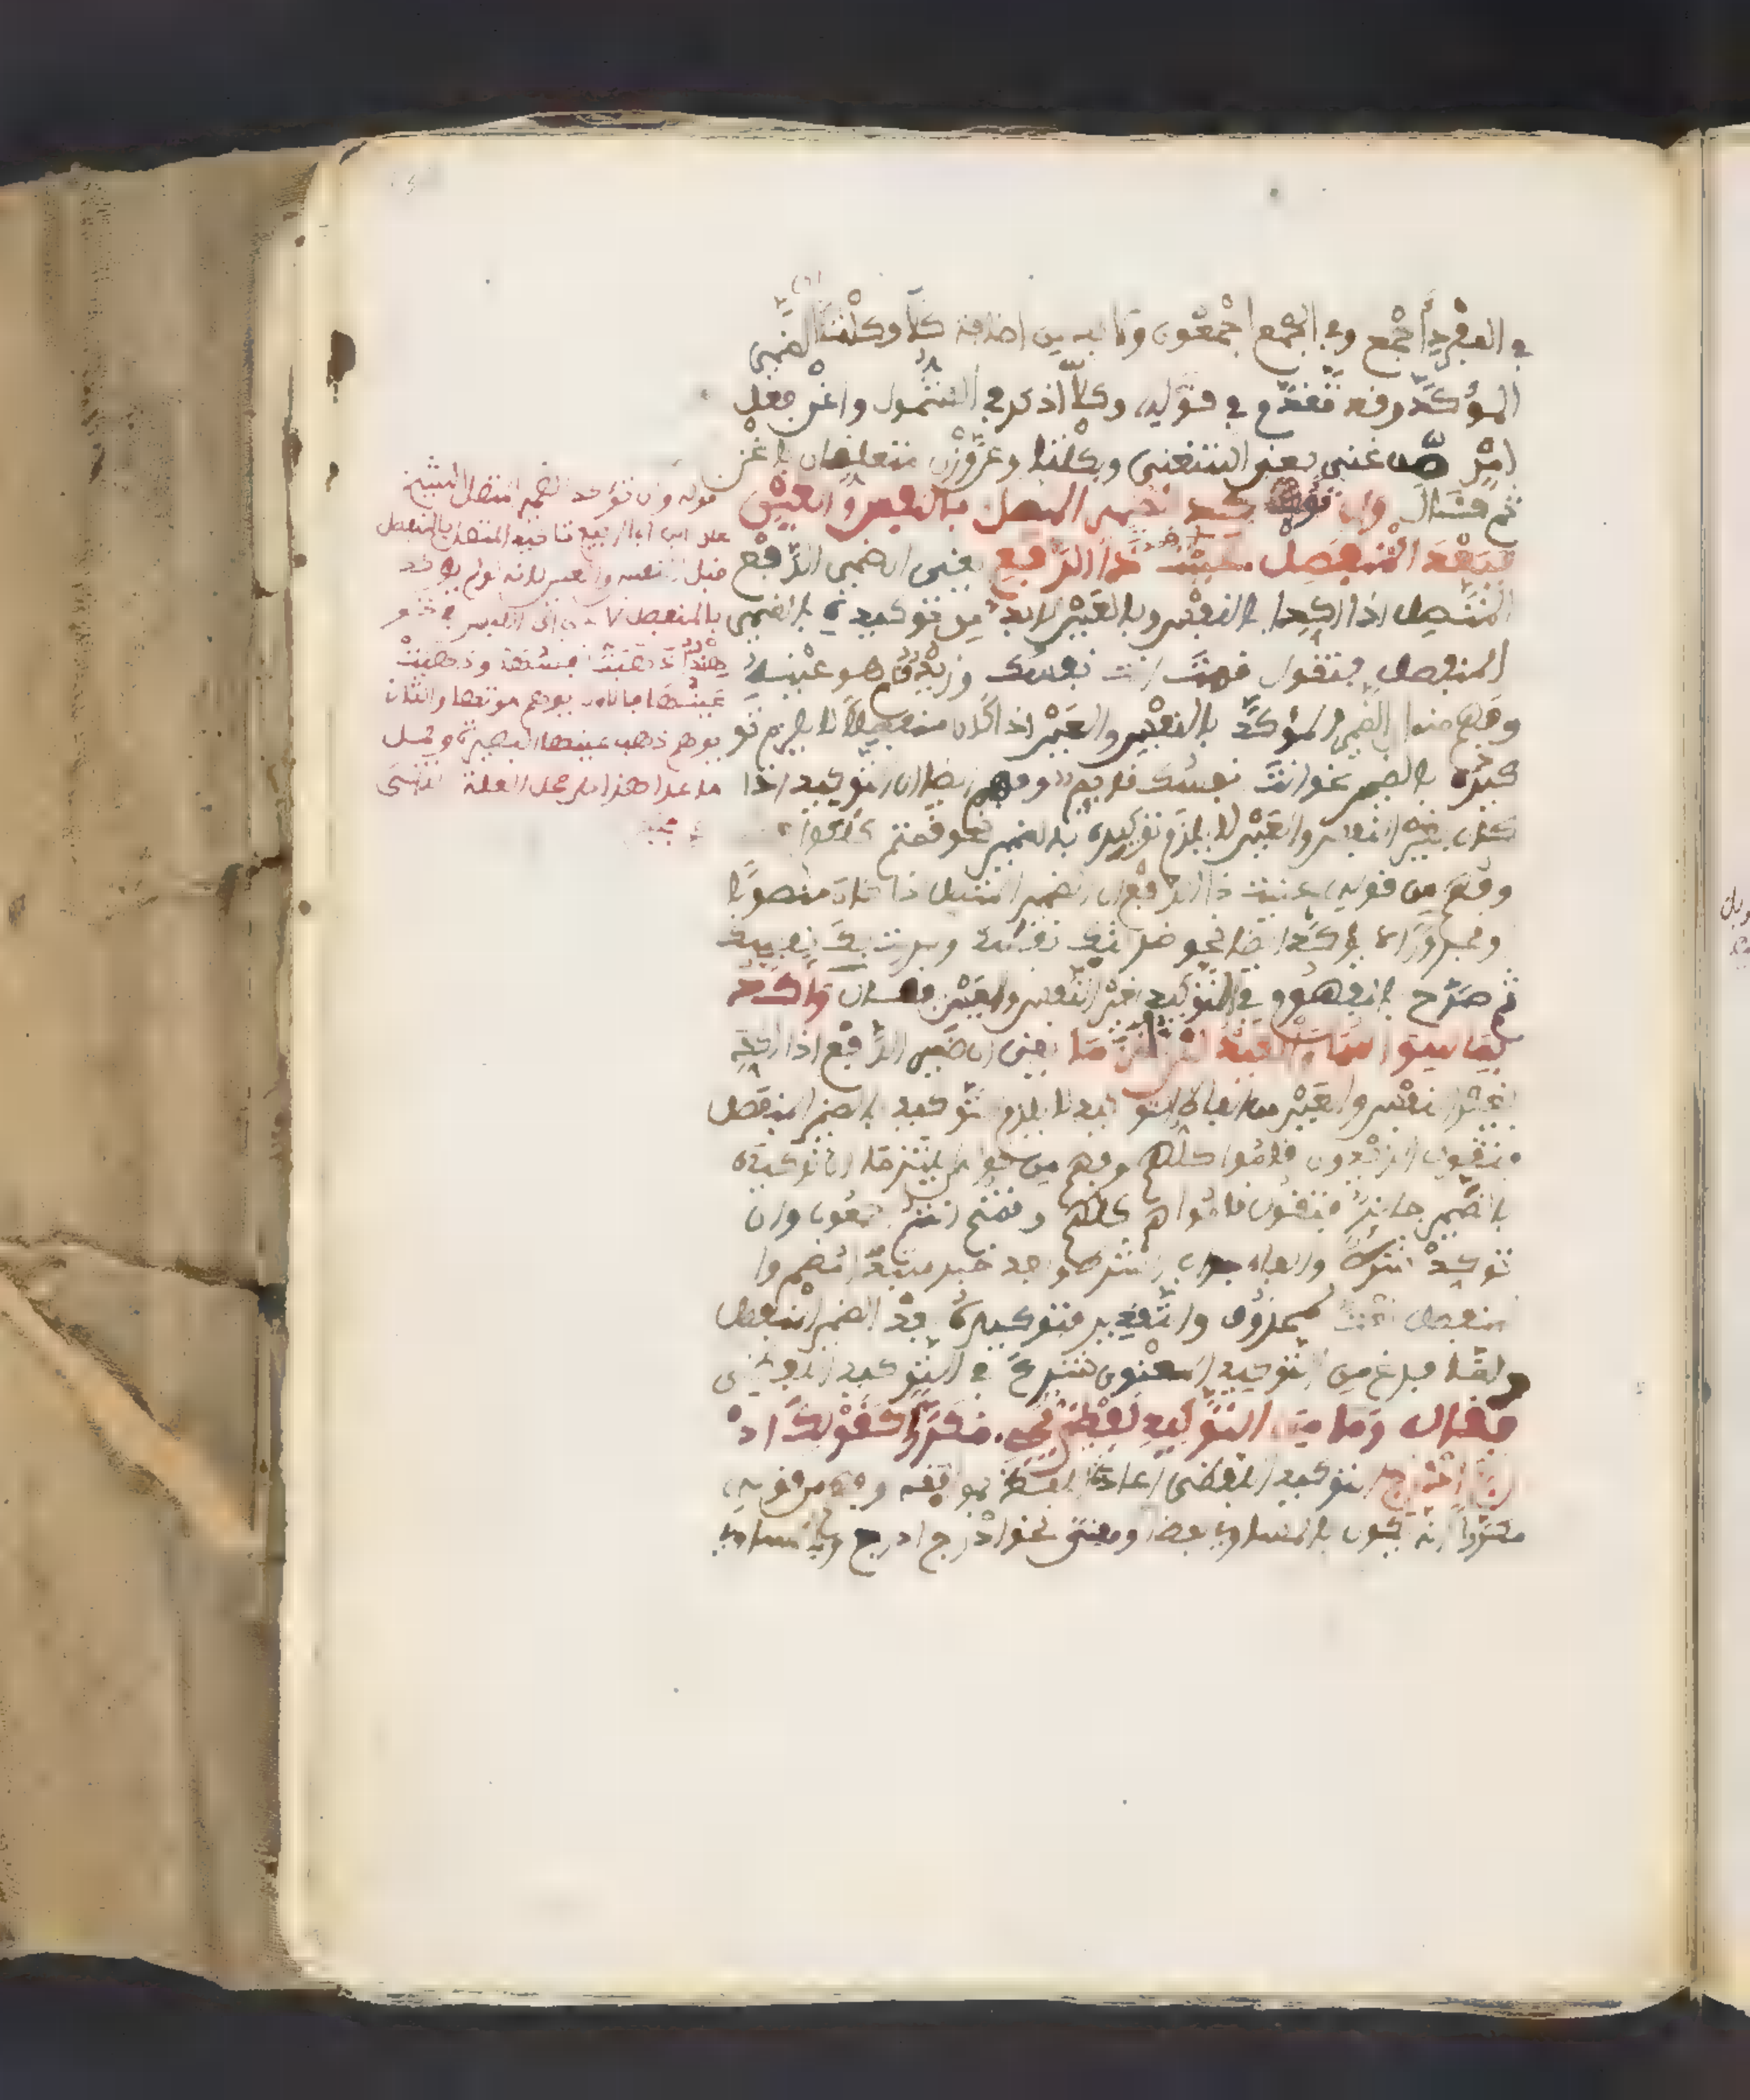 في المفرد أجمع وفي الجمع أجمعون ولا بد من اضافة كلا وكلتا الى ضمير
المؤكد وقد تقدم في قوله وكلا اذكر في الشمول واغن فعل
امر من غني بمعنى استغنى وبكلتا وعن وزن متعلقان باغن
ثم قال وان تؤكد الضمير المتصل بالنفس والعين
فبعد المنفصل عنيت ذا الرفع يعني ان ضمير الرفع
المتصل اذا اكد بالنفس وبالعين لا بد من توكيده بالضمير
المنفصل فتقول قمت انت نفسك وزيد قام هو عينه
وفهم منه ان الضمير المؤكد بالنفس والعين اذا كان منفصلا لا يلزم تو
كيده بالضمير نحو انت نفسك قايم وفهم ايضا ان التوكيد اذا
كان بغير النفس والعين لا يلزم توكيده بالضمير نحو قمتم كلكم
وفهم من قوله عنيت ذا الرفع ان الضمير المتصل اذا كان منصوبا
ومجرورا لا يؤكد ايضا نحو ضربتك نفسك ومررت بك نفسك
ثم صرح بالمفهوم في التوكيد بغير النفس والعين فقال واكدوا
بما سواهما والقيد لن يلتزما يعني ان ضمير الرفع اذا اكد
بغير النفس والعين من الفاظ التوكيد لا يلزم توكيده بالضمير المنفصل
فتقول الزيدون قاموا كلهم وفهم من قوله لن يلتزما ان توكيده
بالضمير جائز فتقول قاموا هم كلهم وقمتم انتم اجمعون وان
تؤكد شرط والفاء جواب الشرط وبعد خبر مبتدا مضمر وا
لمنفصل نعت لمحذوف والتقدير فتوكيده بعد الضمير المنفصل
ولما فرغ من التوكيد المعنوي شرع في التوكيد اللفظي
فقال وما من التوكيد لفظي يجي مكررا كقولك اد
رج ادرج التوكيد اللفظي اعادة اللفظ او موافقه وفهم من قوله
مكررا انه يكون بالمساوي لفظا ومعنى نحو ادرج ادرج وبالمساوي
قوله وان تؤكد الضمير المتصل الشيخ
على ابن ابي الربيع تاكيد المتصل بالمنفصل
قبل النفس والعين لانه لو لم يؤكد
بالمنفصل لادى الى اللبس في نحو
هند ذهبت نفسها وذهبت
عينها فالاول يوهم موتها والثاني
يوهم ذهاب عينها البصيرة وحمل
ما عدا هذا على محل العلة انتهى